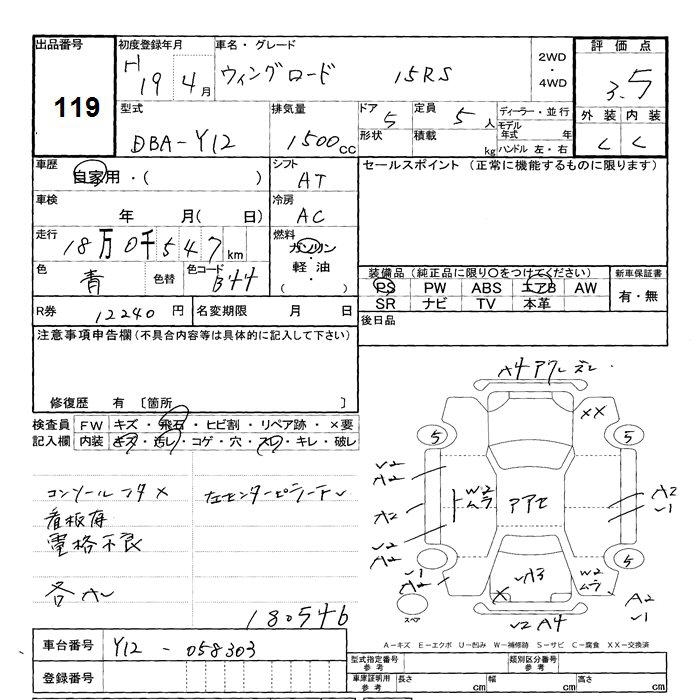 出品番号
119
初度登録年月
H19年4月
車名・グレード
ウィングロード 15RS
2WD
・
4WD
評価点
3.5
型式
DBA-Y12
排気量
1500cc
ドア
5
形状
定員
5人
積載
kg
ディーラー・並行
モデル年式 年
ハンドル 左・右
外装 内装
C C
車歴
自家用・( )
シフト
AT
セールスポイント (正常に機能するものに限ります)
車検
年 月( 日)
冷房
AC
走行
18万0千547km
燃料
ガソリン
・
軽油
( )
色
青
色替
色コード
B44
装備品(純正品に限り○をつけてください)
PS PW ABS エアB AW
SR ナビ TV 本革
新車保証書
有・無
R券 12240円
名変期限 月 日
後日品
注意事項申告欄(不具合内容等は具体的に記入して下さい)
修復歴 有 〔箇所 〕
検査員記入欄
FW キズ・飛石・ヒビ割・リペア跡・×要
内装 キズ・汚レ・コゲ・穴・スレ・キレ・破レ
コンソールフタ×
看板有
電格不良
各AU
180546
A4
××
5
5
U2
A2
W2
ムラ
アアセ
A2
U1
A2
U2
A2
5
U1
A2
×
A3
W2
ムラ
A2
U1
スペア
U2 A4
A-キズ E-エクボ U-凹み W-補修跡 S-サビ C-腐食 XX-交換済
車台番号 Y12 - 058303
登録番号
型式指定番号
参考
類別区分番号
参考
車庫証明用
参考
長さ cm
幅 cm
高さ cm